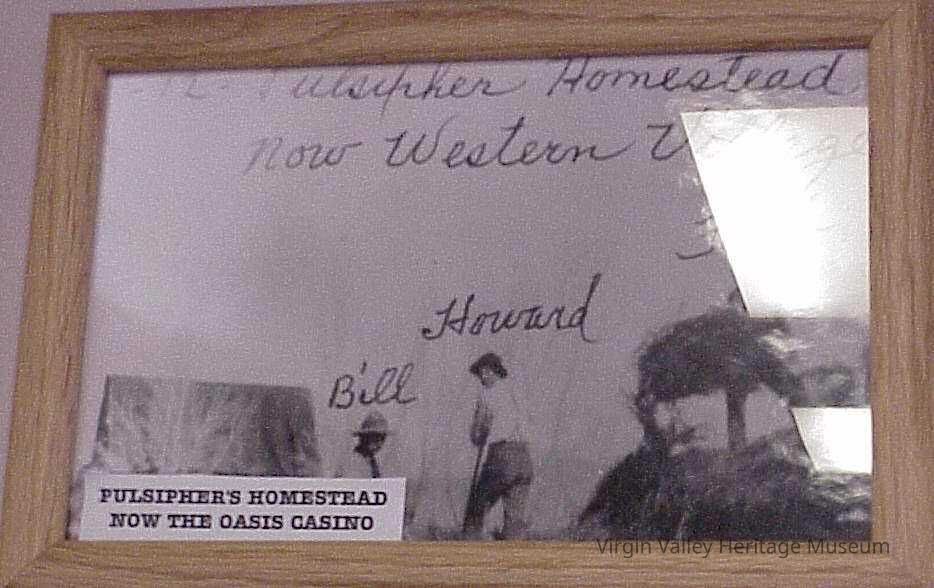 Pulsipher Homestead
now Western
Howard
Bill
PULSIPHER'S HOMESTEAD
NOW THE OASIS CASINO
Virgin Valley Heritage Museum